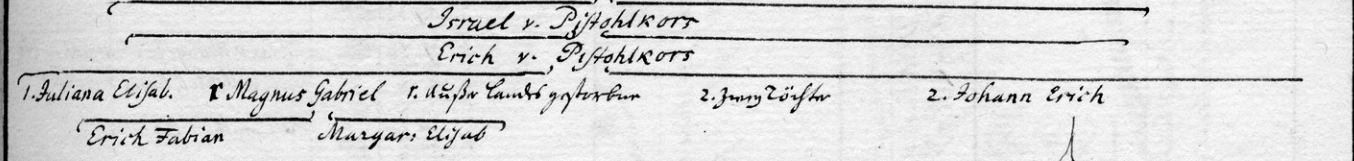 Israel v. Pistohlkors
Erich v. Pistohlkors
1. Juliana Elisab. 1 Magnus Gabriel 1. Außer Landes gestorben 2. Zwey Töchter 2. Johann Erich
Erich Fabian Margar: Elisab